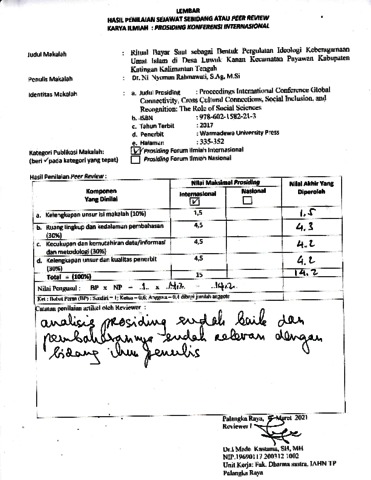 LEMBAR
HASIL PENILAIAN SEJAWAT SEBIDANG ATAU PEER REVIEW
KARYA ILMIAH : PROSIDING KONFERENSI INTERNASIONAL
Judul Makalah : Ritual Bayar Saut sebagai Bentuk Pergulatan Ideologi Keberagamaan
Umat Islam di Desa Luwuk Kanan Kecamatan Payawan Kabupaten
Katingan Kalimantan Tengah
Penulis Makalah : Dr. Ni Nyoman Rahmawati, S.Ag, M.Si
Identitas Makalah : a. Judul Prosiding : Proceedings International Conference Global
Connectivity, Cross Cultural Connections, Social Inclusion, and
Recognition: The Role of Social Sciences
b. ISBN : 978-602-1582-21-3
c. Tahun Terbit : 2017
d. Penerbit : Warmadewa University Press
e. Halaman : 335-352
Kategori Publikasi Makalah : ✓ Prosiding Forum Ilmiah Internasional
(beri ✓ pada kategori yang tepat) Prosiding Forum Ilmiah Nasional
Hasil Penilaian Peer Review :
Komponen Yang Dinilai Nilai Maksimal Prosiding Nilai Akhir Yang Diperoleh
Internasional ✓ Nasional
a. Kelengkapan unsur isi makalah (10%) 1,5 1.5
b. Ruang lingkup dan kedalaman pembahasan (30%) 4,5 4.3
c. Kecukupan dan kemutahiran data/informasi dan metodologi (30%) 4,5 4.2
d. Kelengkapan unsur dan kualitas penerbit (30%) 4,5 4.2
Total = (100%) 15 14.2
Nilai Pengusul : BP x NP = 1 x 14.2 = 14.2
Ket : Bobot Peran (BP) : Sendiri = 1; Ketua = 0,6; Anggota = 0,4 dibagi jumlah anggota
Catatan penilaian artikel oleh Reviewer :
analisis prosiding sudah baik dan
pembahasannya sudah relevan dengan
bidang ilmu penulis
Palangka Raya, Maret 2021
Reviewer 1
Dr. I Made Kastama, SH, MH
NIP.19690117 200312 1002
Unit Kerja: Fak. Dharma sastra, IAHN TP
Palangka Raya